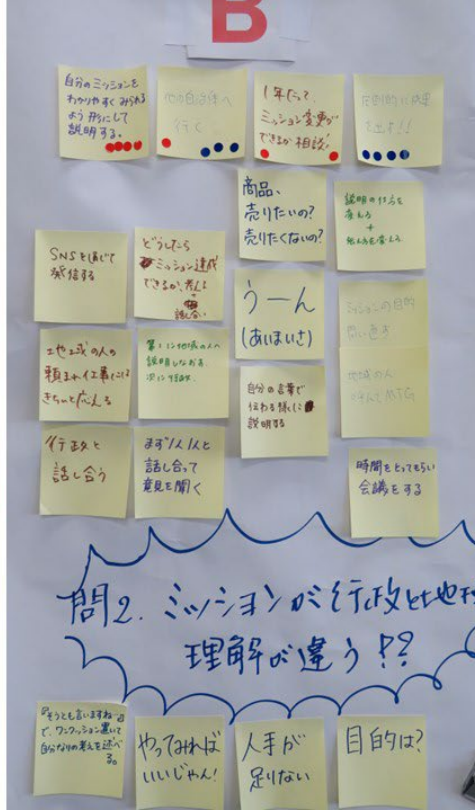 B
自分のミッションを
わかりやすくみられる
よう形にして
説明する。
他の自治体へ
行く
1年たって、
ミッション変更が
できるか相談!
圧倒的に成果
を出す!!
商品、
売りたいの?
売りたくないの?
説明の仕方を
考える
+
SNSを通じて
発信する
どうしたら
ミッション達成
できるか、考える
話し合い
うーん
(あいまいさ)
ミッションの目的
問い直す
地域の人の
頼まれ仕事にも
きちっと応える
第1に地域の人へ
説明しなおす
次に行政、
自分の言葉で
伝わる様に
説明する
地域の人
MTG
行政と
話し合う
まず1人1人と
話し合って
意見を聞く
時間をとってもらい
会議をする
問2. ミッションが行政と地
理解が違う??
『そうとも言いますねー』
で、ワンクッション置いて
自分なりの考えを述べ
る。
やってみれば
いいじゃん!
人手が
足りない
目的は?